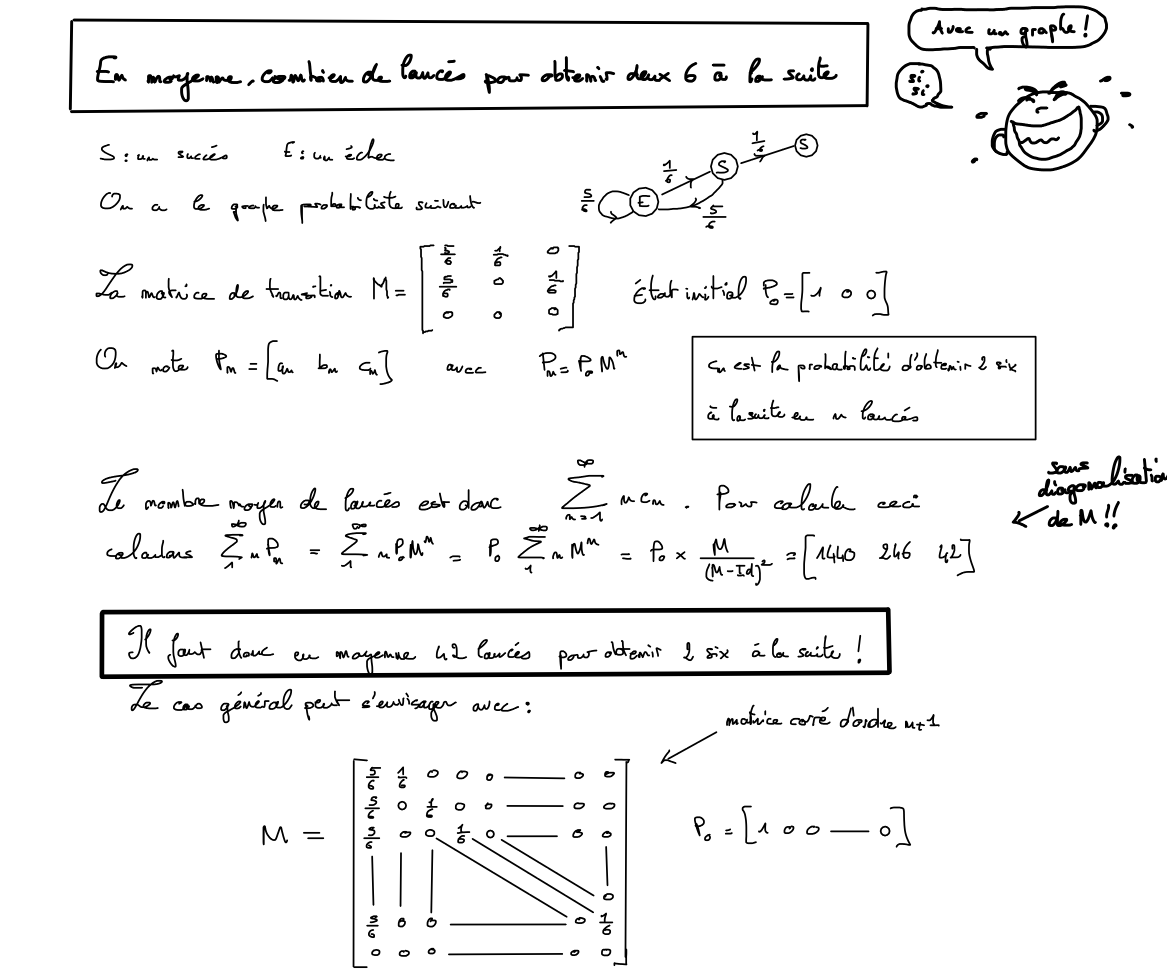 En moyenne, combien de lancés pour obtenir deux 6 à la suite
Avec un graphe !
si
si
S : un succés E : un échec
On a le graphe probabiliste suivant
5/6 E 1/6 S 1/6 S 5/6
La matrice de transition M = [5/6 1/6 0
5/6 0 1/6
0 0 0] État initial P₀ = [1 0 0]
On note Pₙ = [aₙ bₙ cₙ] avec Pₙ = P₀ Mⁿ
cₙ est la probabilité d'obtenir 2 six
à la suite en n lancés
Le nombre moyen de lancés est donc ∑_{n=1}^{∞} n cₙ . Pour calculer ceci
sans
diagonalisation
de M !!
calculons ∑_1^∞ n Pₙ = ∑_1^∞ n P₀ Mⁿ = P₀ ∑_1^∞ n Mⁿ = P₀ × M/(M-Id)² = [1440 246 42]
Il faut donc en moyenne 42 lancés pour obtenir 2 six à la suite !
Le cas général peut s'envisager avec :
matrice carré d'ordre n+1
M = [5/6 1/6 0 0 0 0 0
5/6 0 1/6 0 0 0 0
5/6 0 0 1/6 0 0 0
0
5/6 0 0 0 1/6
0 0 0 0 0]
P₀ = [1 0 0 0]